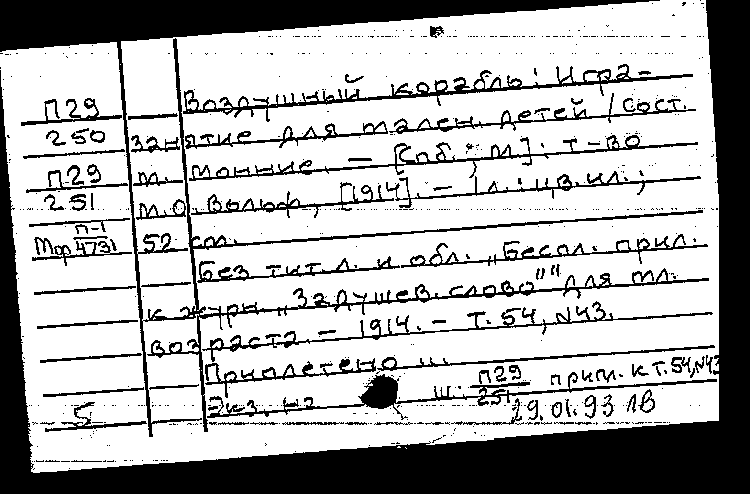 Воздушный корабль: Игра-
П29
250 занятие для мален. детей / Сост.
П29 т. Монние. — [Спб.; М]: Т-во
251 М.О. Вольф, [1914]. — 1 л.: цв. ил.;
Мор П-1/4731 52 см.
Без тит. л. и обл. „Беспл. прил.
к журн. „Задушев. слово"" для мл.
возраста. — 1914. — Т. 54, N43.
Приплетено ...
Экз. нг Ш: П29/251 припл. к т. 54, N43
5 29.01.93 ЛВ